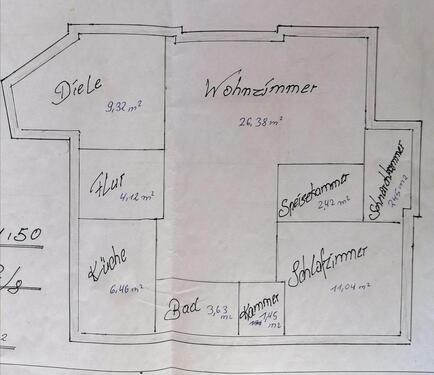 Diele
9,32 m²
Wohnzimmer
26,38 m²
Flur
4,12 m²
Speisekammer
2,42 m²
Küche
6,46 m²
Schlafzimmer
11,04 m²
Bad 3,63 m²
Kammer
1,45 m²
,50
2